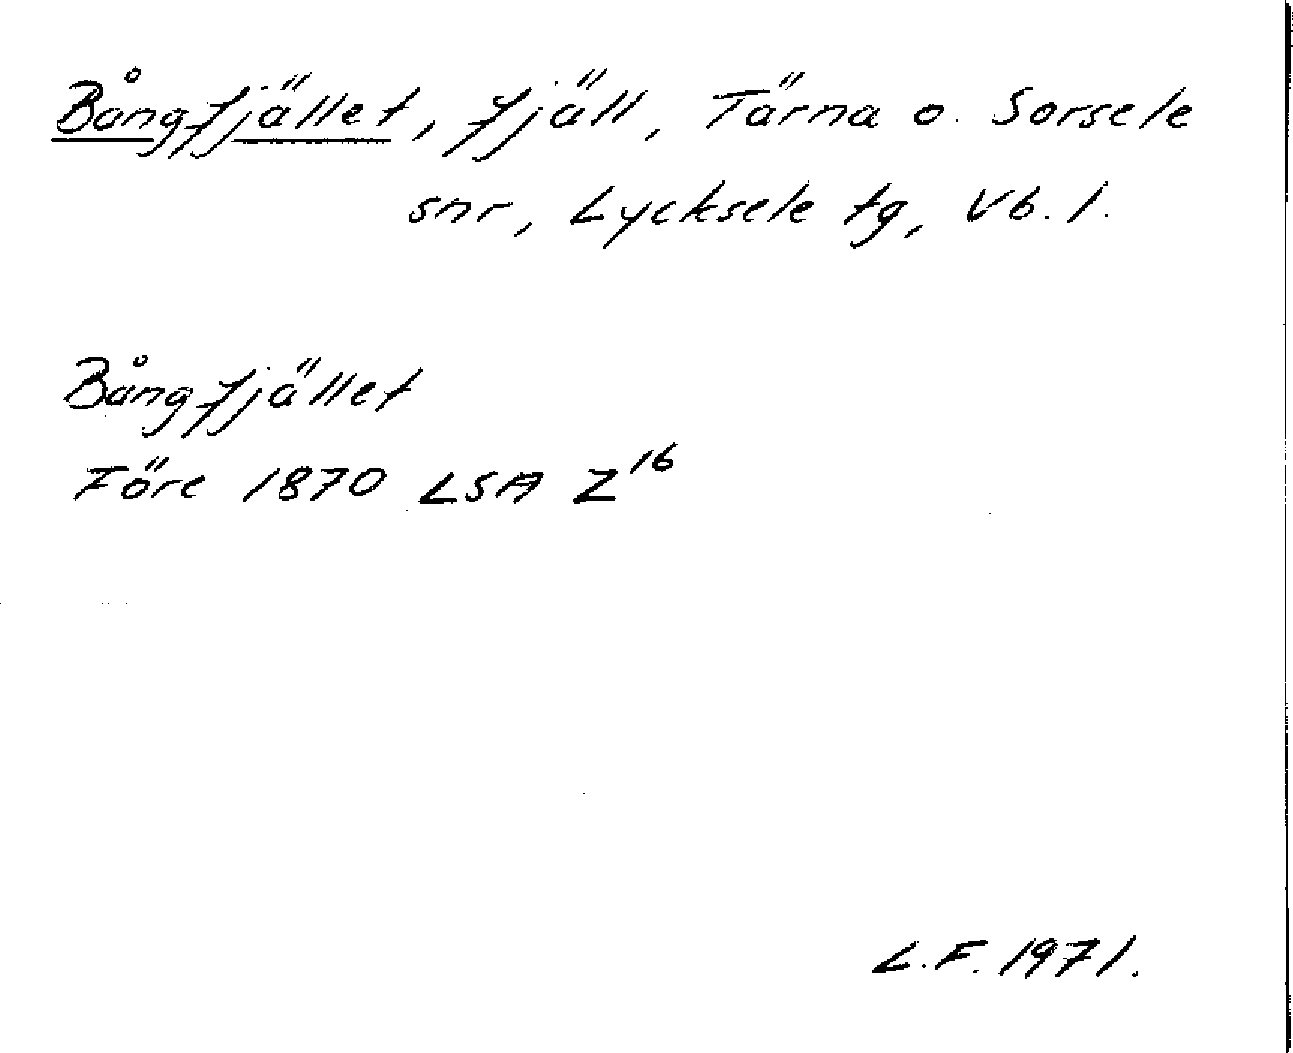 Bångfjället, fjäll, Tärna o. Sorsele
snr, Lycksele tg, Vb. l.
Bångfjället
Före 1870 LSA Z16
L.F. 1971.